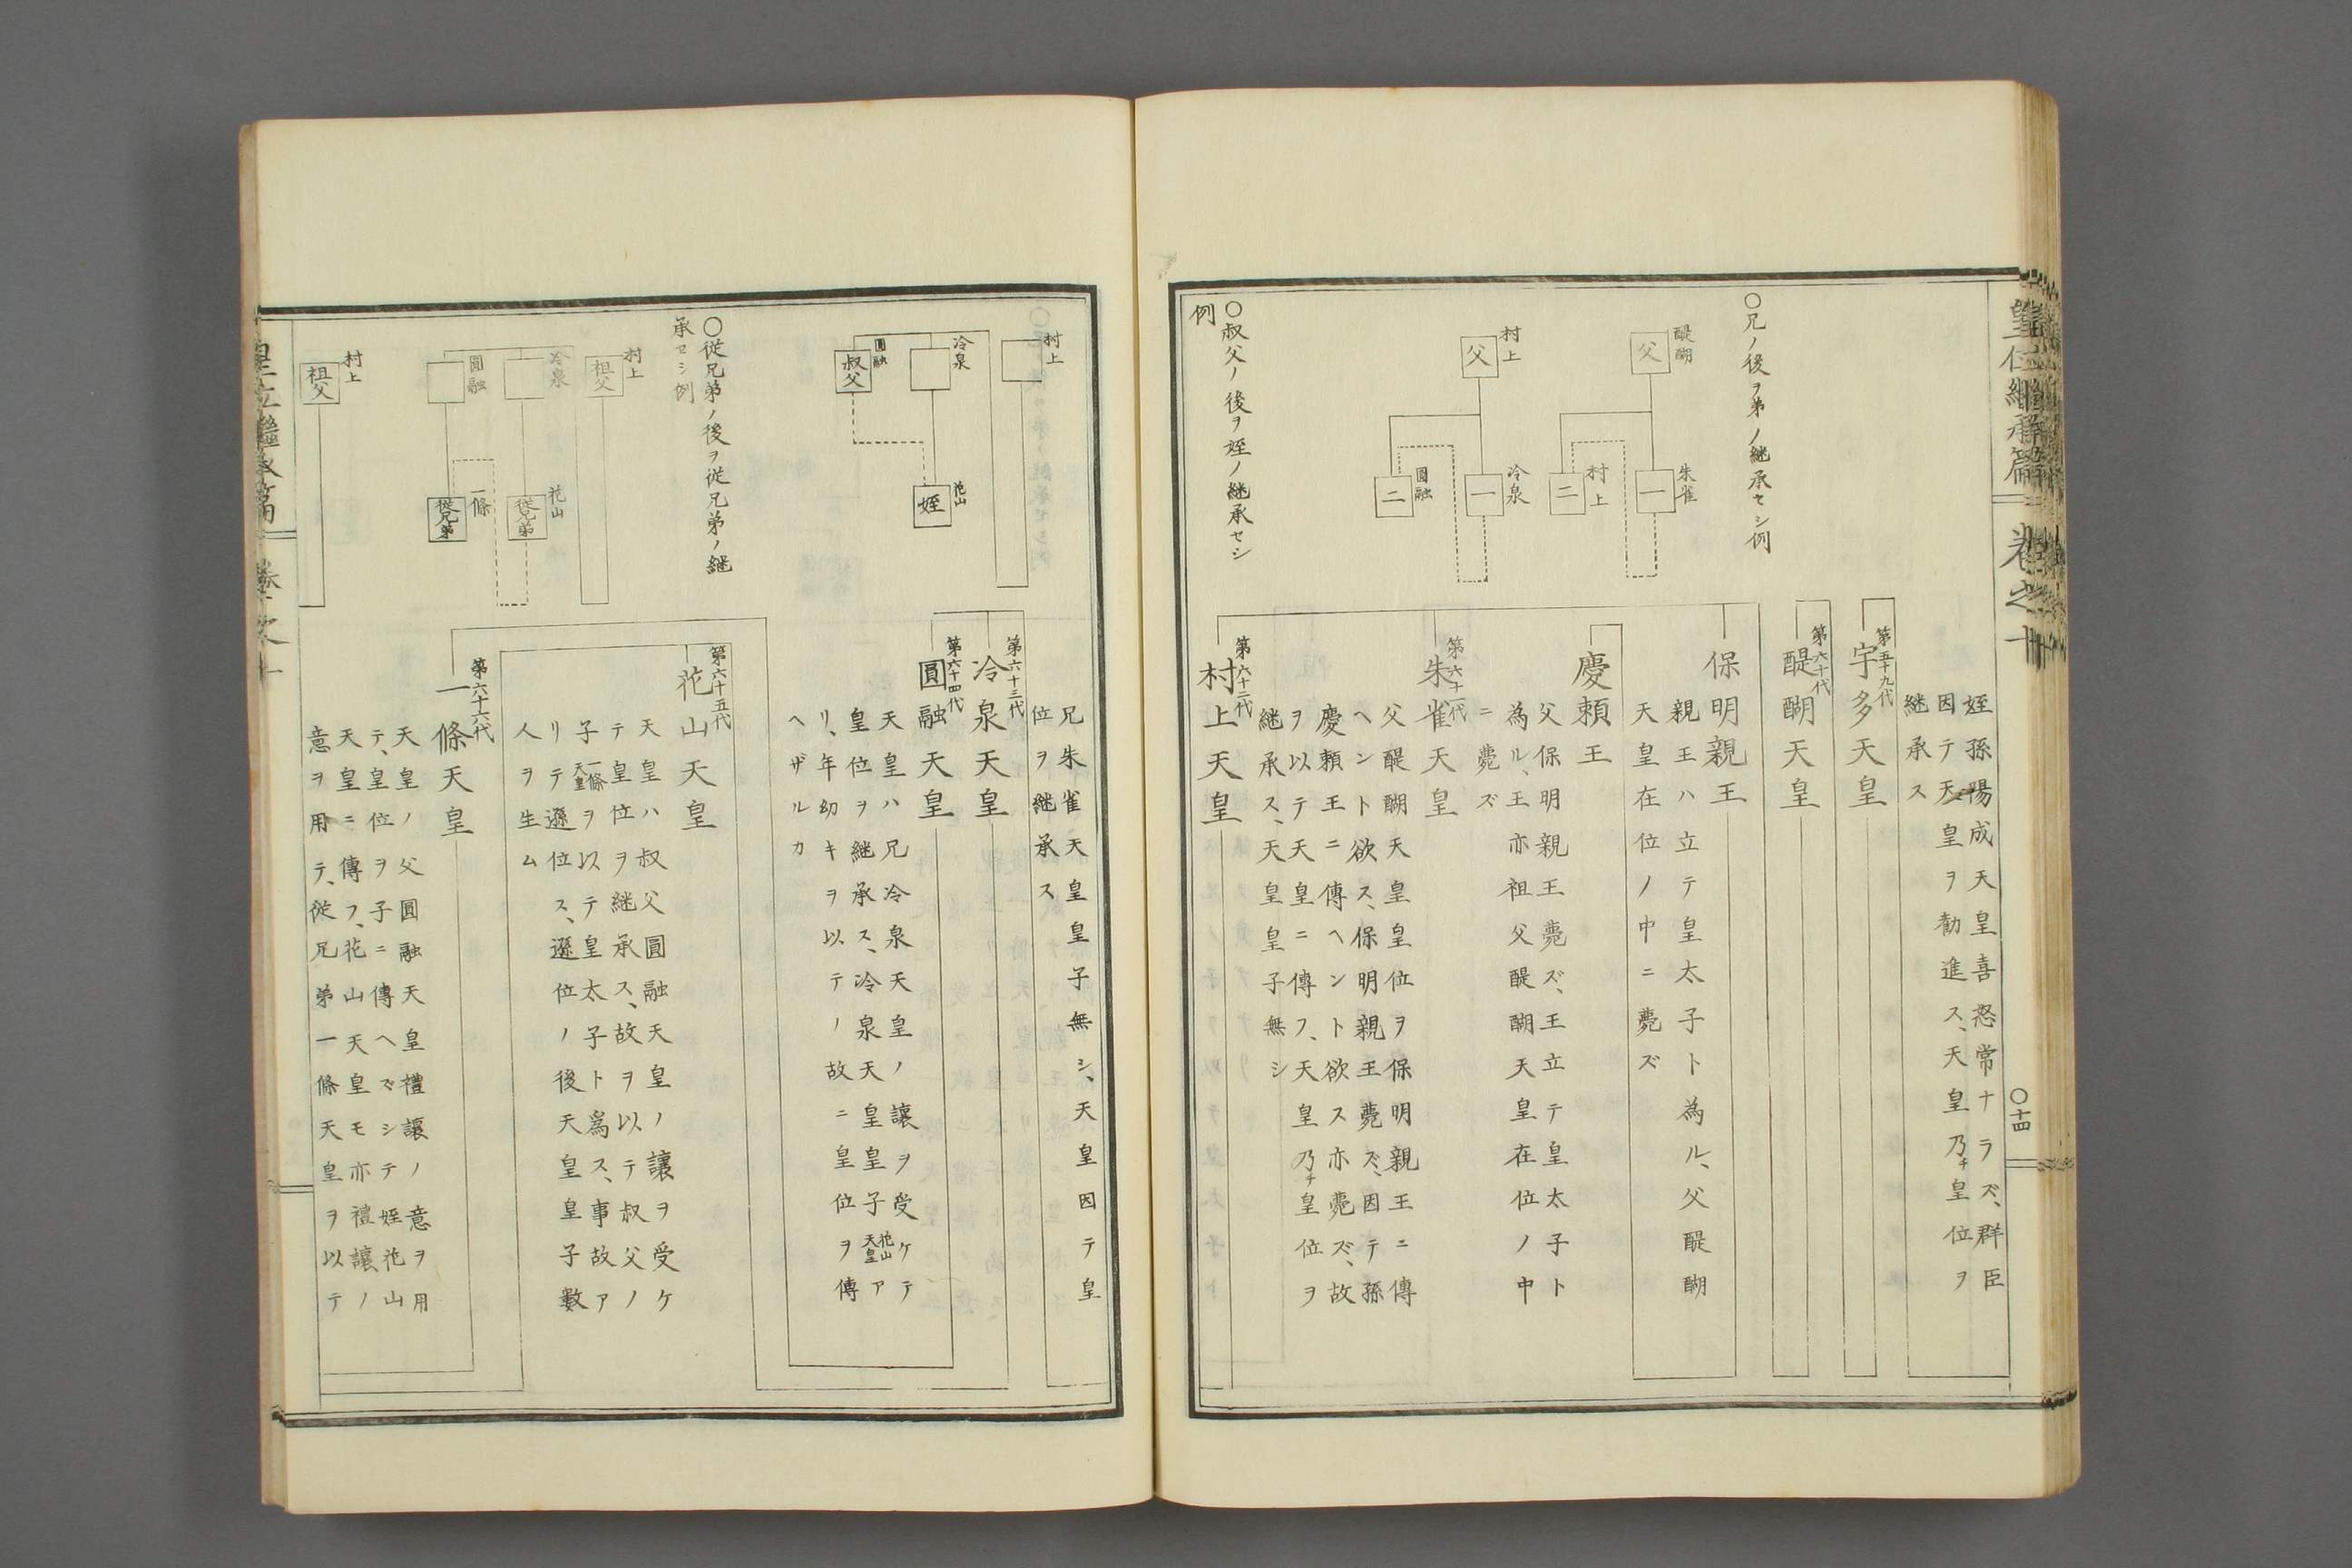 皇位繼承篇　卷之十
〇十四
〇兄ノ後ヲ弟ノ継承セシ例
醍醐
父
朱雀
一
村上
二
村上
父
冷泉
一
圓融
二
〇叔父ノ後ヲ姪ノ継承セシ
例
姪孫陽成天皇喜怒常ナラズ、群臣
因テ天皇ヲ勸進ス、天皇乃チ皇位ヲ
継承ス
第五十九代
宇多天皇
第六十代
醍醐天皇
保明親王
親王ハ立テ皇太子ト為ル、父醍醐
天皇在位ノ中ニ薨ズ
慶頼王
父保明親王薨ズ、王立テ皇太子ト
為ル、王亦祖父醍醐天皇在位ノ中
ニ薨ズ
第六十一代
朱雀天皇
父醍醐天皇皇位ヲ保明親王ニ傳
ヘント欲ス、保明親王薨ズ、因テ孫
慶頼王ニ傳ヘント欲ス亦薨ズ、故
ヲ以テ天皇ニ傳フ、天皇乃チ皇位ヲ
継承ス、天皇皇子無シ
第六十二代
村上天皇
村上
冷泉
圓融
叔父
花山
姪
〇従兄弟ノ後ヲ従兄弟ノ継
承セシ例
村上
祖父
冷泉
花山
従兄弟
圓融
一條
従兄弟
村上
祖父
兄朱雀天皇皇子無シ、天皇因テ皇
位ヲ継承ス
第六十三代
冷泉天皇
第六十四代
圓融天皇
天皇ハ兄冷泉天皇ノ讓ヲ受ケテ
皇位ヲ継承ス、冷泉天皇皇子花山天皇ア
リ、年幼キヲ以テノ故ニ皇位ヲ傳
ヘザルカ
第六十五代
花山天皇
天皇ハ叔父圓融天皇ノ讓ヲ受ケ
テ皇位ヲ継承ス、故ヲ以テ叔父ノ
子一條天皇ヲ以テ皇太子ト爲ス、事故ア
リテ遜位ス、遜位ノ後天皇皇子數
人ヲ生ム
第六十六代
一條天皇
天皇ノ父圓融天皇禮讓ノ意ヲ用
テ、皇位ヲ子ニ傳ヘズシテ姪花山
天皇ニ傳フ、花山天皇モ亦禮讓ノ
意ヲ用テ、従兄弟一條天皇ヲ以テ